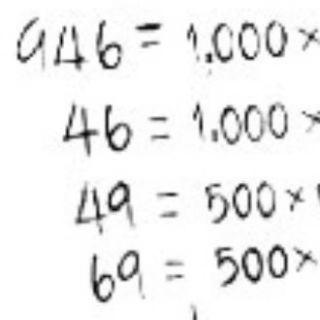 946 = 1.000 ×
46 = 1.000 ×
49 = 500 ×
69 = 500 ×